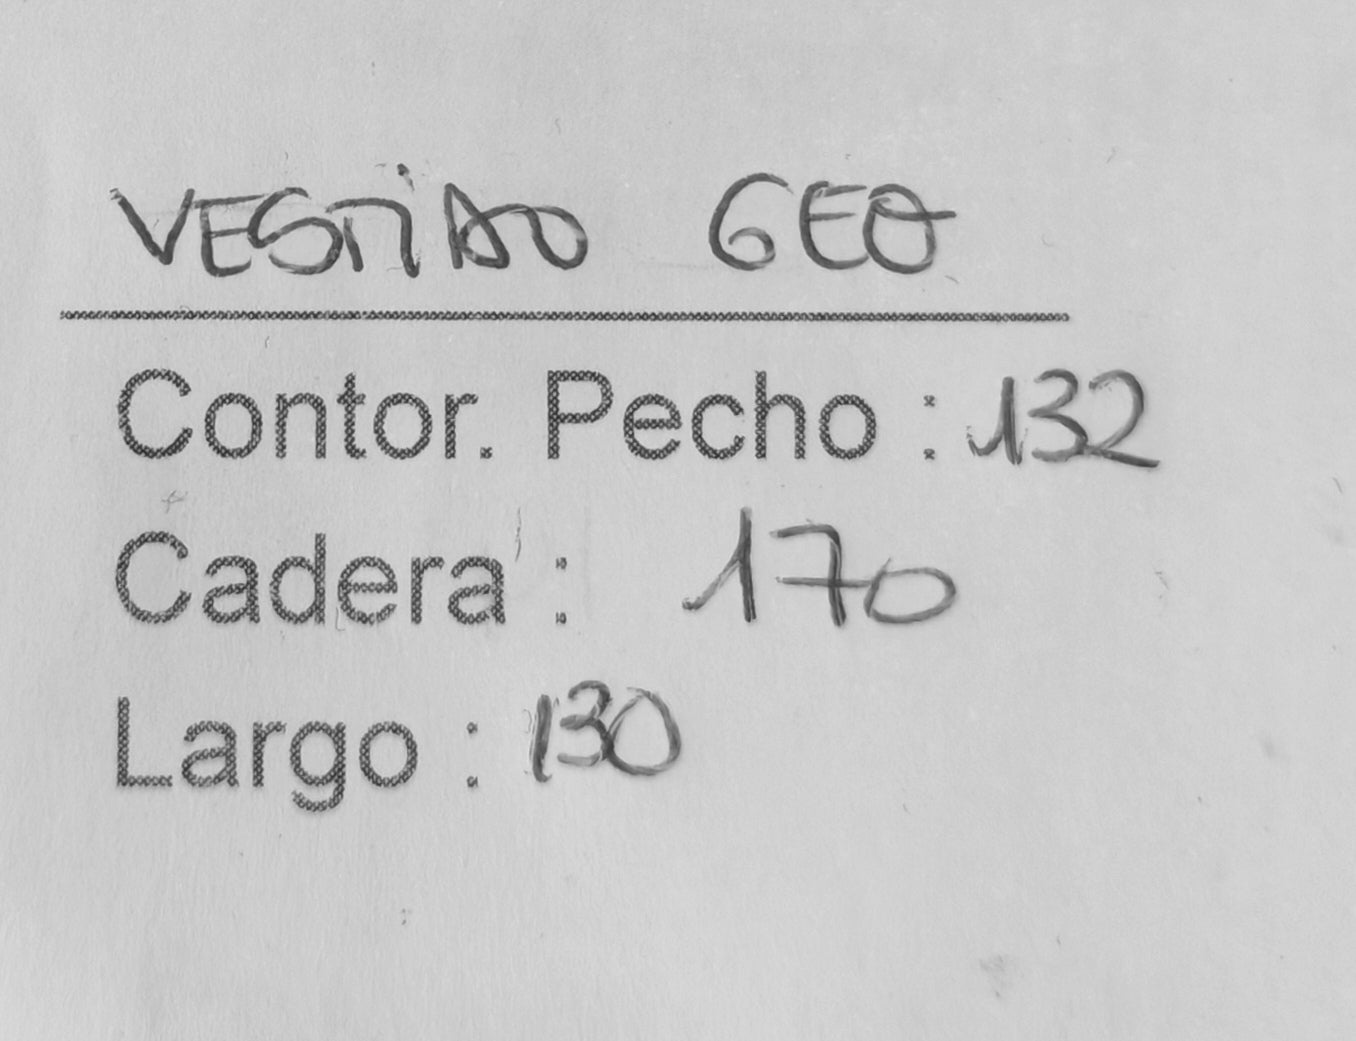 VESTIDO GEO
Contor. Pecho : 132
Cadera : 170
Largo : 130